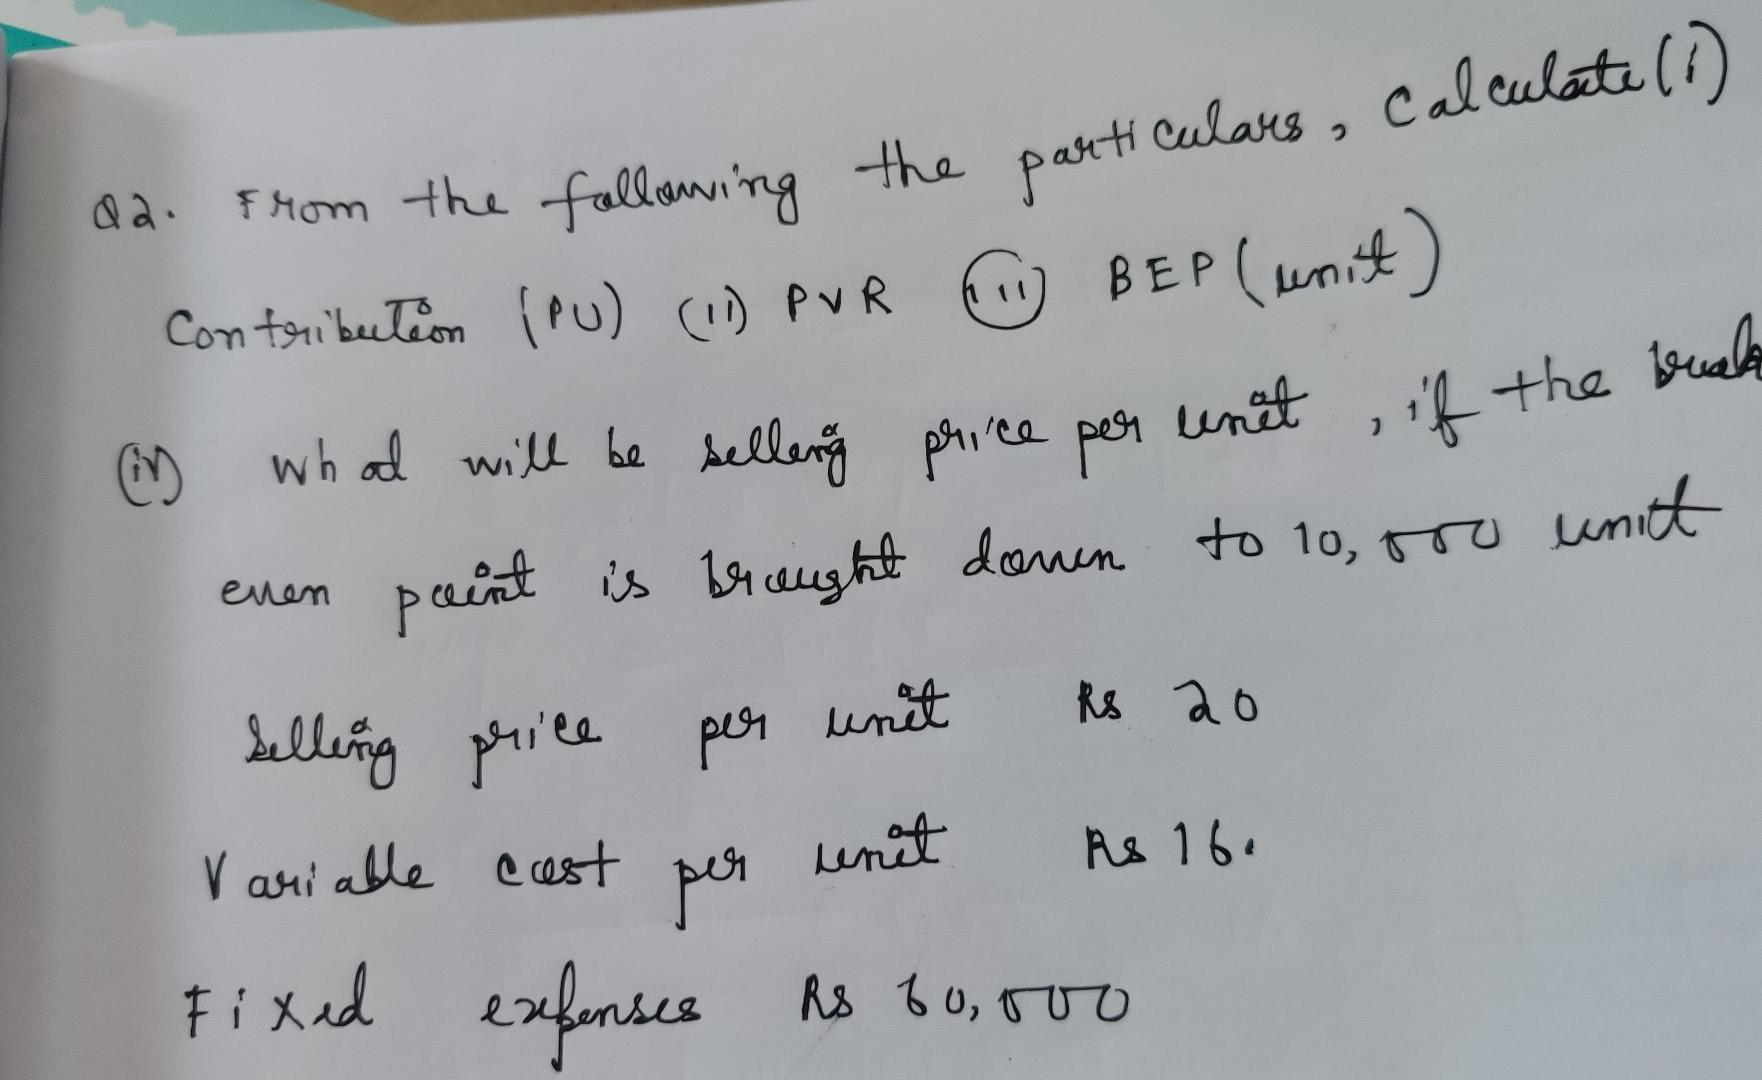 Q2. From the following the particulars, Calculate (i)
Contribution (PU) (ii) PVR (iii) BEP (unit)
(iv) What will be selling price per unit, if the break
even point is brought down to 10,000 unit
Selling price per unit Rs 20
Variable cost per unit Rs 16.
Fixed expenses Rs 60,000